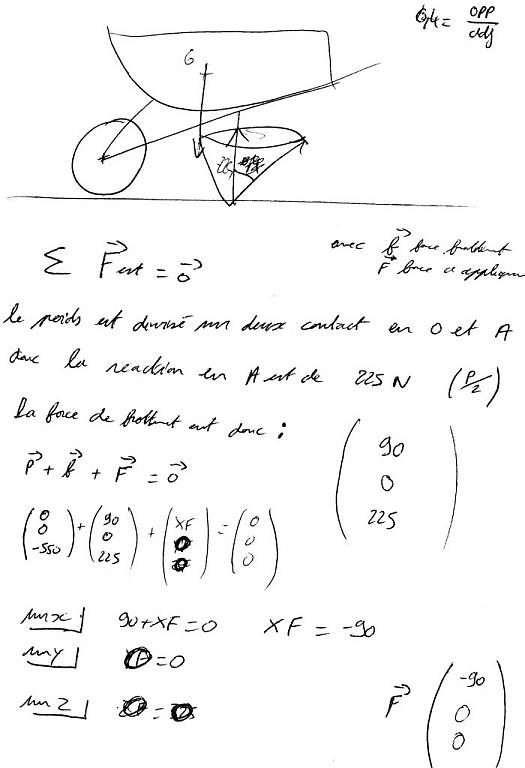 0,4 = opp/adj
G
Σ F⃗ext = 0⃗
avec f⃗ force frottement
F⃗ force a appliquer
le poids est divisé sur deux contact en O et A
donc la reaction en A est de 225 N (P/2)
la force de frottement est donc : (90 0 225)
P⃗ + f⃗ + F⃗ = 0⃗
(0 0 -550) + (90 0 225) + (XF 0 0) = (0 0 0)
sur x | 90 + XF = 0 XF = -90
sur y | 0 = 0
sur z | 0 = 0
F⃗ (-90 0 0)